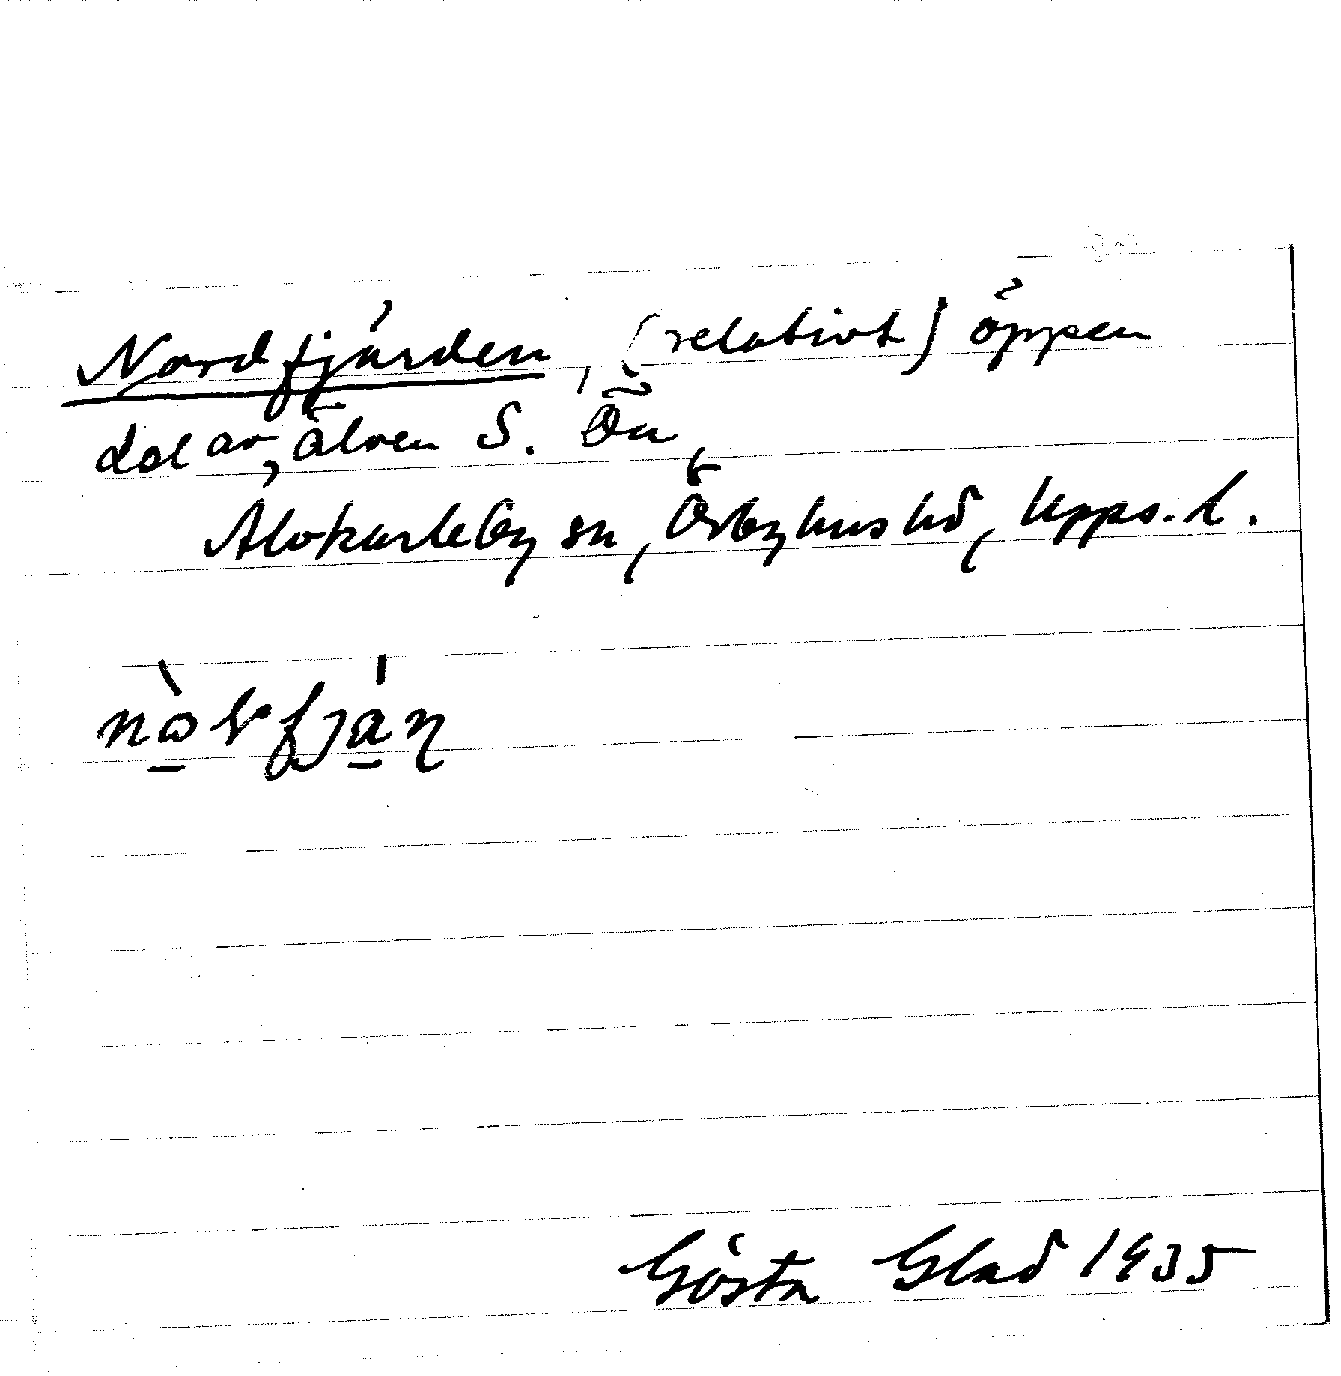 Nordfjärden, (relativt) öppen
del av älven S. Ön,
Älvkarleby sn, Örbyhus hd, Upps. l.
Gösta Glad 1935